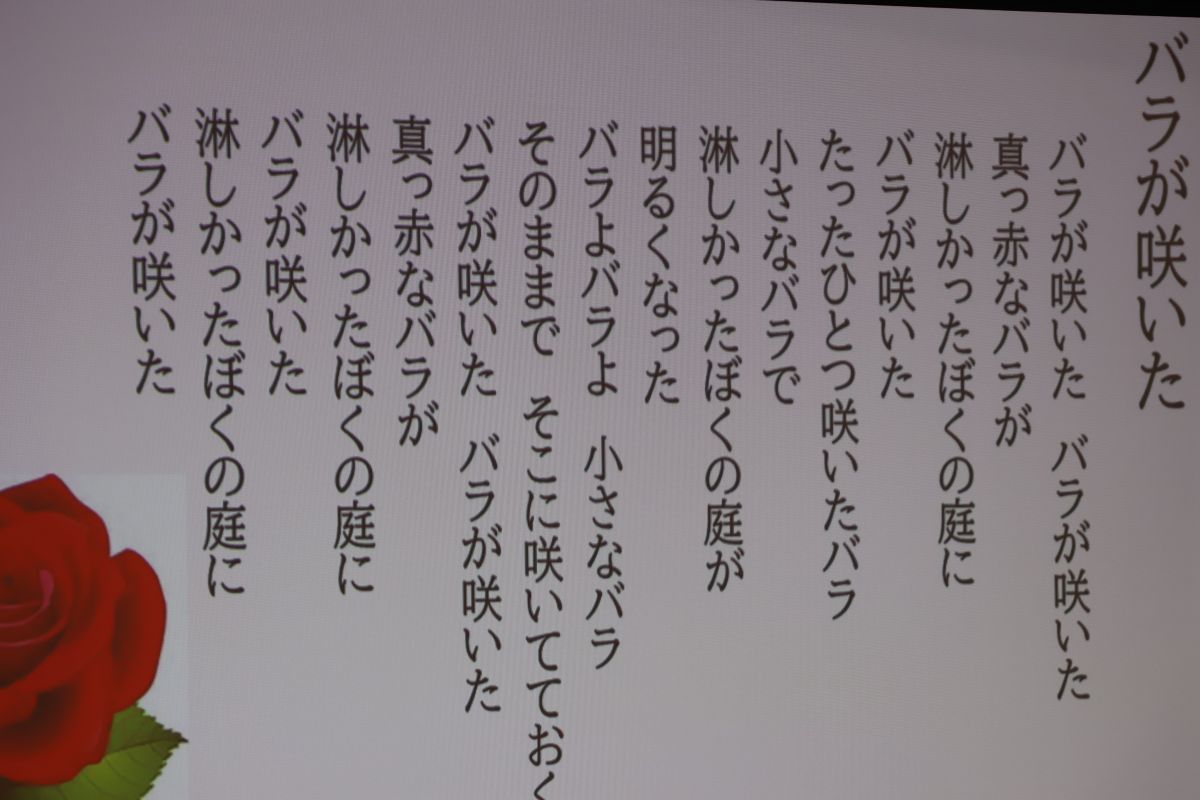 バラが咲いた
バラが咲いた　バラが咲いた
真っ赤なバラが
淋しかったぼくの庭に
バラが咲いた
たったひとつ咲いたバラ
小さなバラで
淋しかったぼくの庭が
明るくなった
バラよバラよ　小さなバラ
そのままで　そこに咲いてておく
バラが咲いた　バラが咲いた
真っ赤なバラが
淋しかったぼくの庭に
バラが咲いた
淋しかったぼくの庭に
バラが咲いた